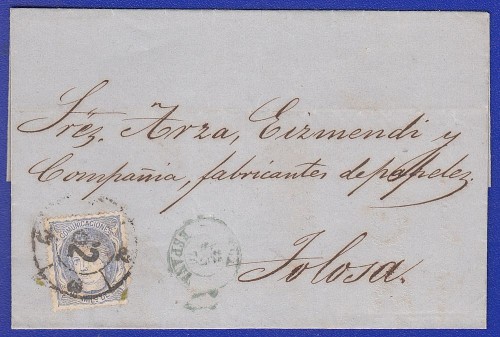 Sres. Arza, Eizmendi y
Compañia, fabricantes de papeles.
Tolosa.
COMUNICACIONES
2